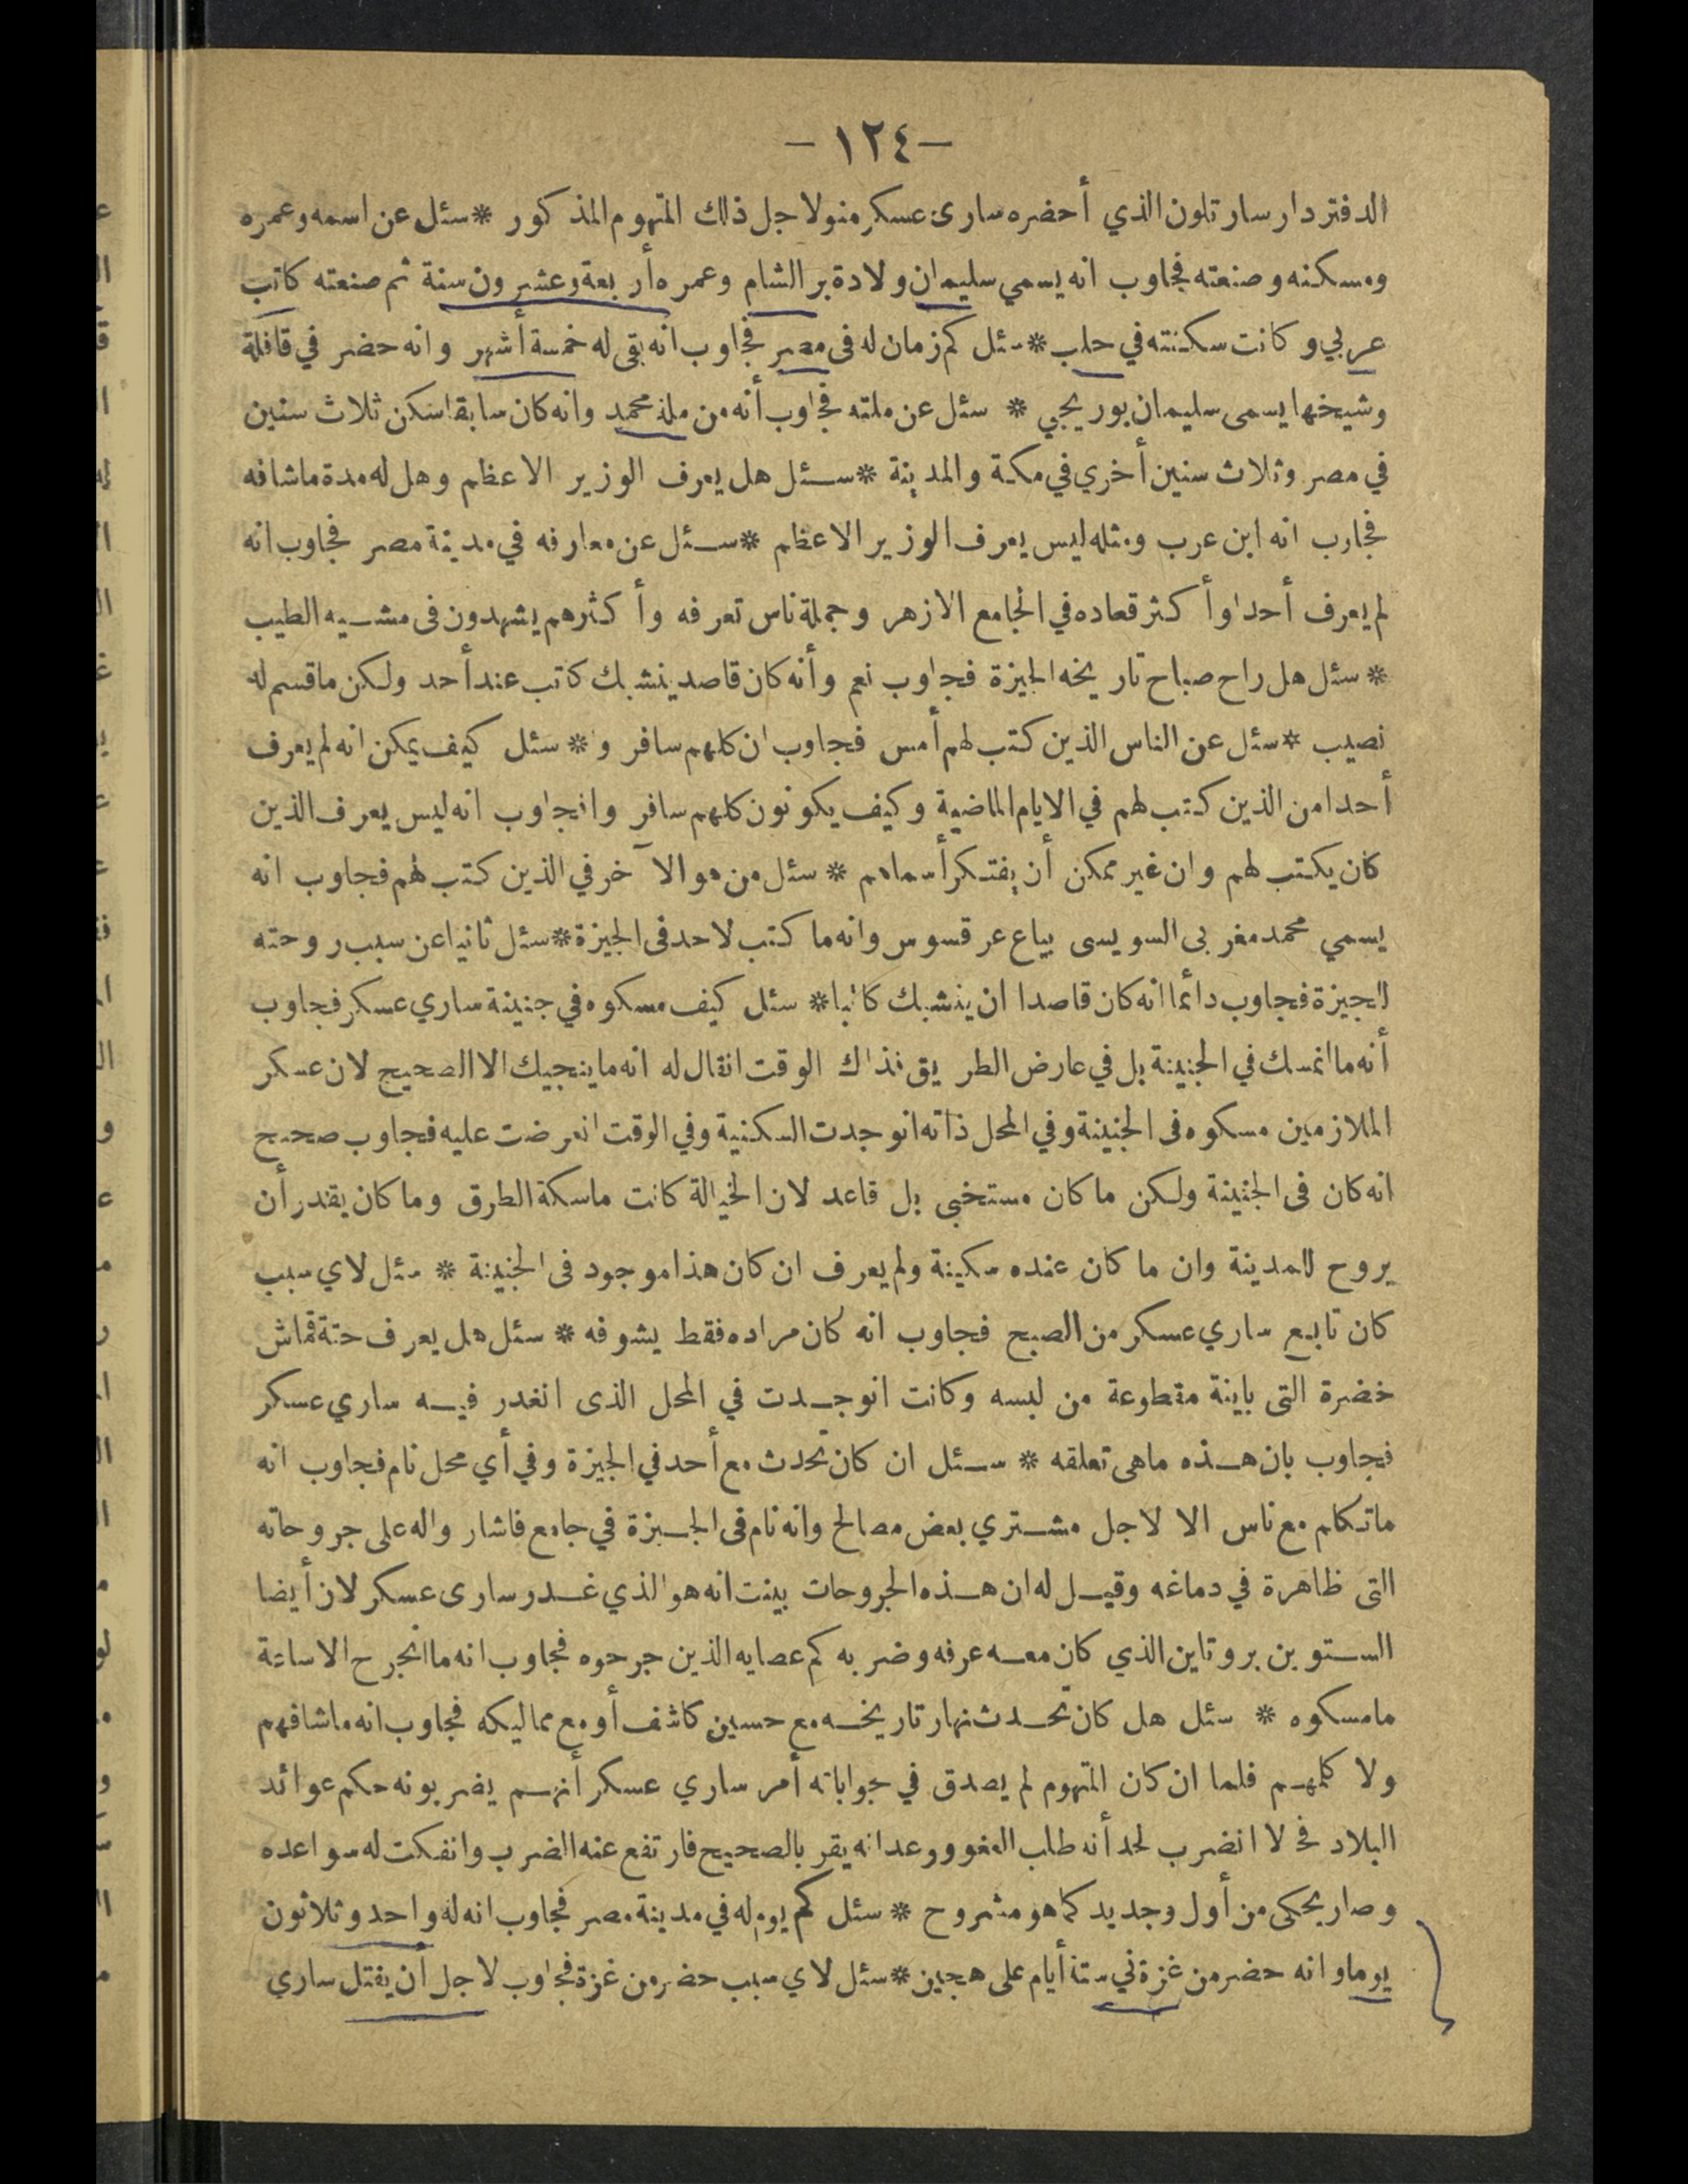 — ١٢٤ —
الدفتردار سارتلون الذي أحضره سارى عسكر منو لاجل ذلك المتهوم المذكور * سئل عن اسمه وعمره
ومسكنه وصنعته فجاوب انه يسمي سليمان ولادة بر الشام وعمره أربعة وعشرون سنة ثم صنعته كاتب
عربي وكانت سكنته في حلب * سئل كم زمان له فى مصر فجاوب انه بقى له خمسة أشهر وانه حضر في قافلة
وشيخها يسمى سليمان بوريجي * سئل عن ملته فجاوب أنه من ملة محمد وانه كان سابقا سكن ثلاث سنين
في مصر وثلاث سنين أخري في مكة والمدينة * سئل هل يعرف الوزير الاعظم وهل له مدة ما شافه
فجارب انه ابن عرب ومثله ليس يعرف الوزير الاعظم * سئل عن معارفه في مدينة مصر فجاوب انه
لم يعرف أحدا وأكثر قعاده في الجامع الازهر وجملة ناس تعرفه وأكثرهم يشهدون فى مشيه الطيب
* سئل هل راح صباح تاريخه الجيزة فجاوب نعم وأنه كان قاصد ينشبك كاتب عند أحد ولكن ما قسم له
نصيب * سئل عن الناس الذين كتب لهم أمس فجاوب ان كلهم سافروا * سئل كيف يمكن انه لم يعرف
أحدا من الذين كتب لهم في الايام الماضية وكيف يكونون كلهم سافروا فجاوب انه ليس يعرف الذين
كان يكتب لهم وان غير ممكن أن يفتكر أسماهم * سئل من هو الآخر في الذين كتب لهم فجاوب انه
يسمي محمد مغربى السويسى بياع عرقسوس وانه ما كتب لاحد فى الجيزة * سئل ثانيا عن سبب روحته
للجيزة فجاوب دائما انه كان قاصدا ان ينشبك كاتبا * سئل كيف مسكوه في جنينة ساري عسكر فجاوب
أنه ما انمسك في الجنينة بل في عارض الطريق فذاك الوقت انقال له انه ما ينجيك الا الصحيح لان عسكر
الملازمين مسكوه فى الجنينة وفي المحل ذاته انوجدت السكنية وفي الوقت انعرضت عليه فجاوب صحيح
انه كان فى الجنينة ولكن ما كان مستخبى بل قاعد لان الخيالة كانت ماسكة الطرق وما كان يقدر أن
يروح للمدينة وان ما كان عنده سكينة ولم يعرف ان كان هذا موجود فى الجنينة * سئل لاي سبب
كان تابع ساري عسكر من الصبح فجاوب انه كان مراده فقط يشوفه * سئل هل يعرف حتة قماش
خضرة التى باينة مقطوعة من لبسه وكانت انوجدت في المحل الذى انغدر فيه ساري عسكر
فجاوب بان هذه ماهى تعلقه * سئل ان كان تحدث مع أحد في الجيزة وفي أي محل نام فجاوب انه
ما تكلم مع ناس الا لاجل مشتري بعض مصالح وانه نام فى الجيزة في جامع فاشاروا له على جروحاته
التى ظاهرة في دماغه وقيل له ان هذه الجروحات بينت انه هو الذي غدر سارى عسكر لان أيضا
الستوين بروتاين الذي كان معه عرفه وضربه كم عصايه الذين جرحوه فجاوب انه ما انجرح الا ساعة
ما مسكوه * سئل هل كان تحدث نهار تاريخه مع حسين كاشف أو مع مماليكه فجاوب انه ما شافهم
ولا كلمهم فلما ان كان المتهوم لم يصدق في جواباته أمر ساري عسكر أنهم يضربونه حكم عوائد
البلاد فحالا انضرب لحد أنه طلب العفو ووعد انه يقر بالصحيح فارتفع عنه الضرب وانفكت له سواعده
وصار يحكى من أول وجديد كما هو مشروح * سئل كم يوم له في مدينة مصر فجاوب انه له واحد وثلاثون
يوما وانه حضر من غزة في ستة أيام على هجين * سئل لاي سبب حضر من غزة فجاوب لاجل أن يقتل ساري